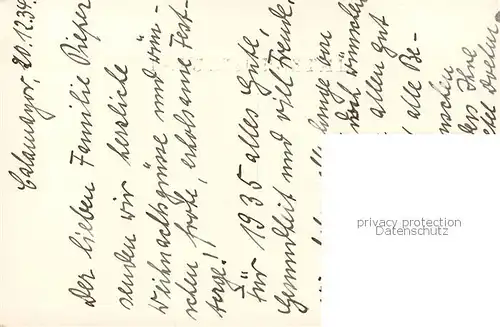 Calamayor, 20.12.34.
Der lieben Familie Pieper
senden wir herzliche
Weihnachtsgrüsse und wün-
schen frohe, erholsame Fest-
tage!
Für 1935 alles Gute,
Gesundheit und viel Freude.
alle Be-
Ihre
privacy protection
Datenschutz